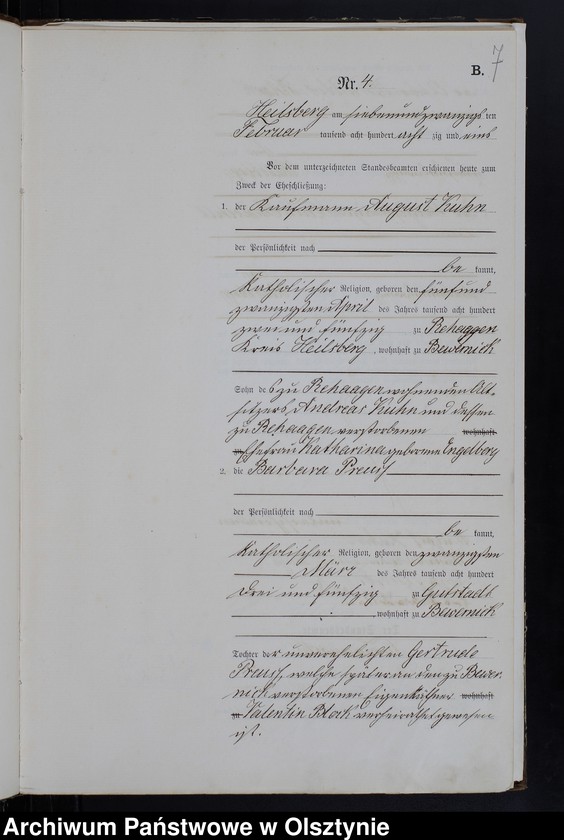 7
B.
Nr. 4.
Heilsberg am siebenundzwanzigs ten
Februar tausend acht hundert acht zig und eins
Vor dem unterzeichneten Standesbeamten erschienen heute zum
Zweck der Eheschließung:
1. der Kaufmann August Kuhn
der Persönlichkeit nach
be kannt,
Katholischer Religion, geboren den fünfund
zwanzigsten April des Jahres tausend acht hundert
zwei und fünfzig zu Rehaggen
Kreis Heilsberg, wohnhaft zu Bewernick
Sohn des zu Rehaagen wohnenden Alt-
sitzers Andreas Kuhn und dessen
zu Rehaagen verstorbenen wohnhaft
zu Ehefrau Katharina geborene Engelberg
2. die Barbara Preuß
der Persönlichkeit nach
be kannt,
Katholischer Religion, geboren den zwanzigsten
März des Jahres tausend acht hundert
drei und fünfzig zu Gutstadt
, wohnhaft zu Bewernick
Tochter der unverehelichten Gertrude
Preuß, welche später an den zu Bewer-
nick verstorbenen Eigenkäthner wohnhaft
zu Valentin Block verheirathet gewesen
ist.
Archiwum Państwowe w Olsztynie